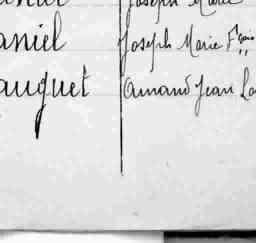 Joseph Marie
aniel Joseph Marie Fçois
auguet Amand Jean Lo